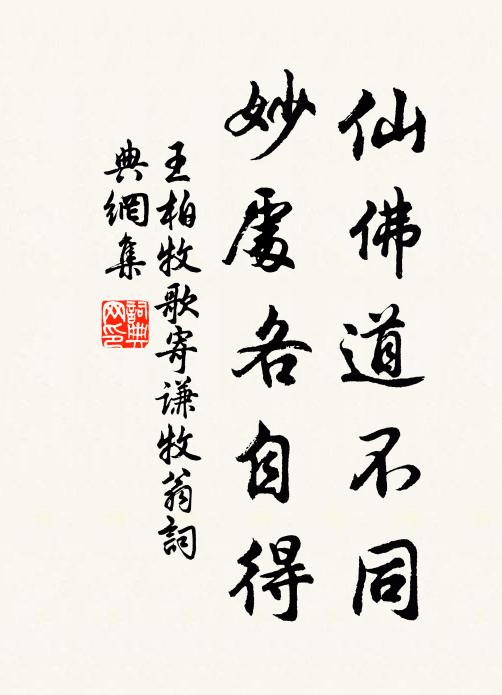 仙佛道不同
妙處各自得
王柏牧歌寄謙牧翁詞
典網集
詞典
网印